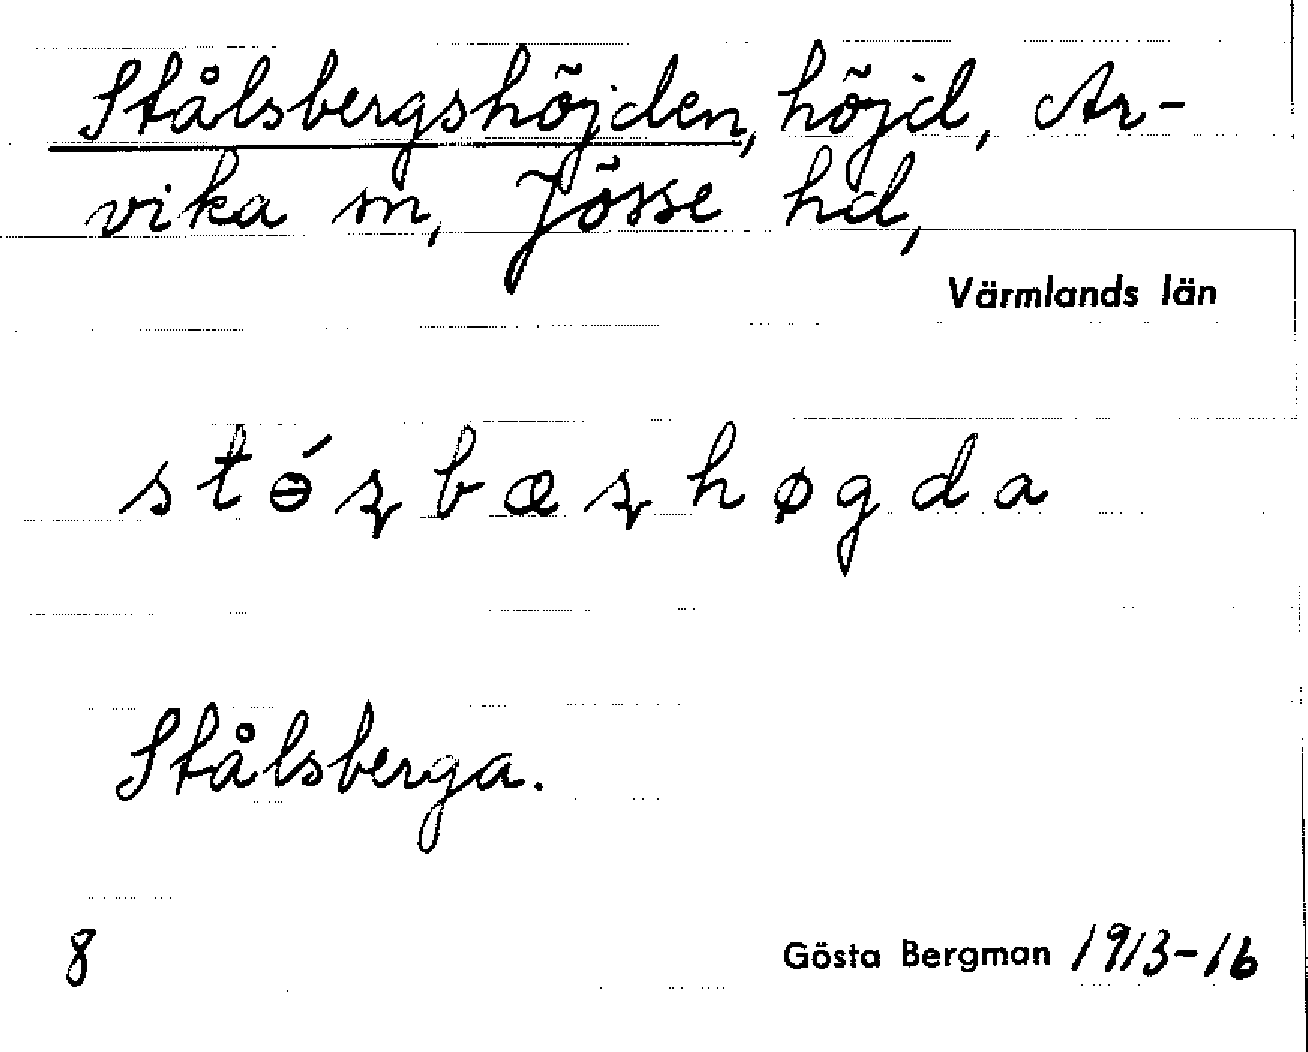 Stålsbergshöjden, höjd, Ar-
vika sn, Jösse hd,
Värmlands län
stɵ́ʂbæʂhøgda
Stålsberga.
8
Gösta Bergman 1913-16